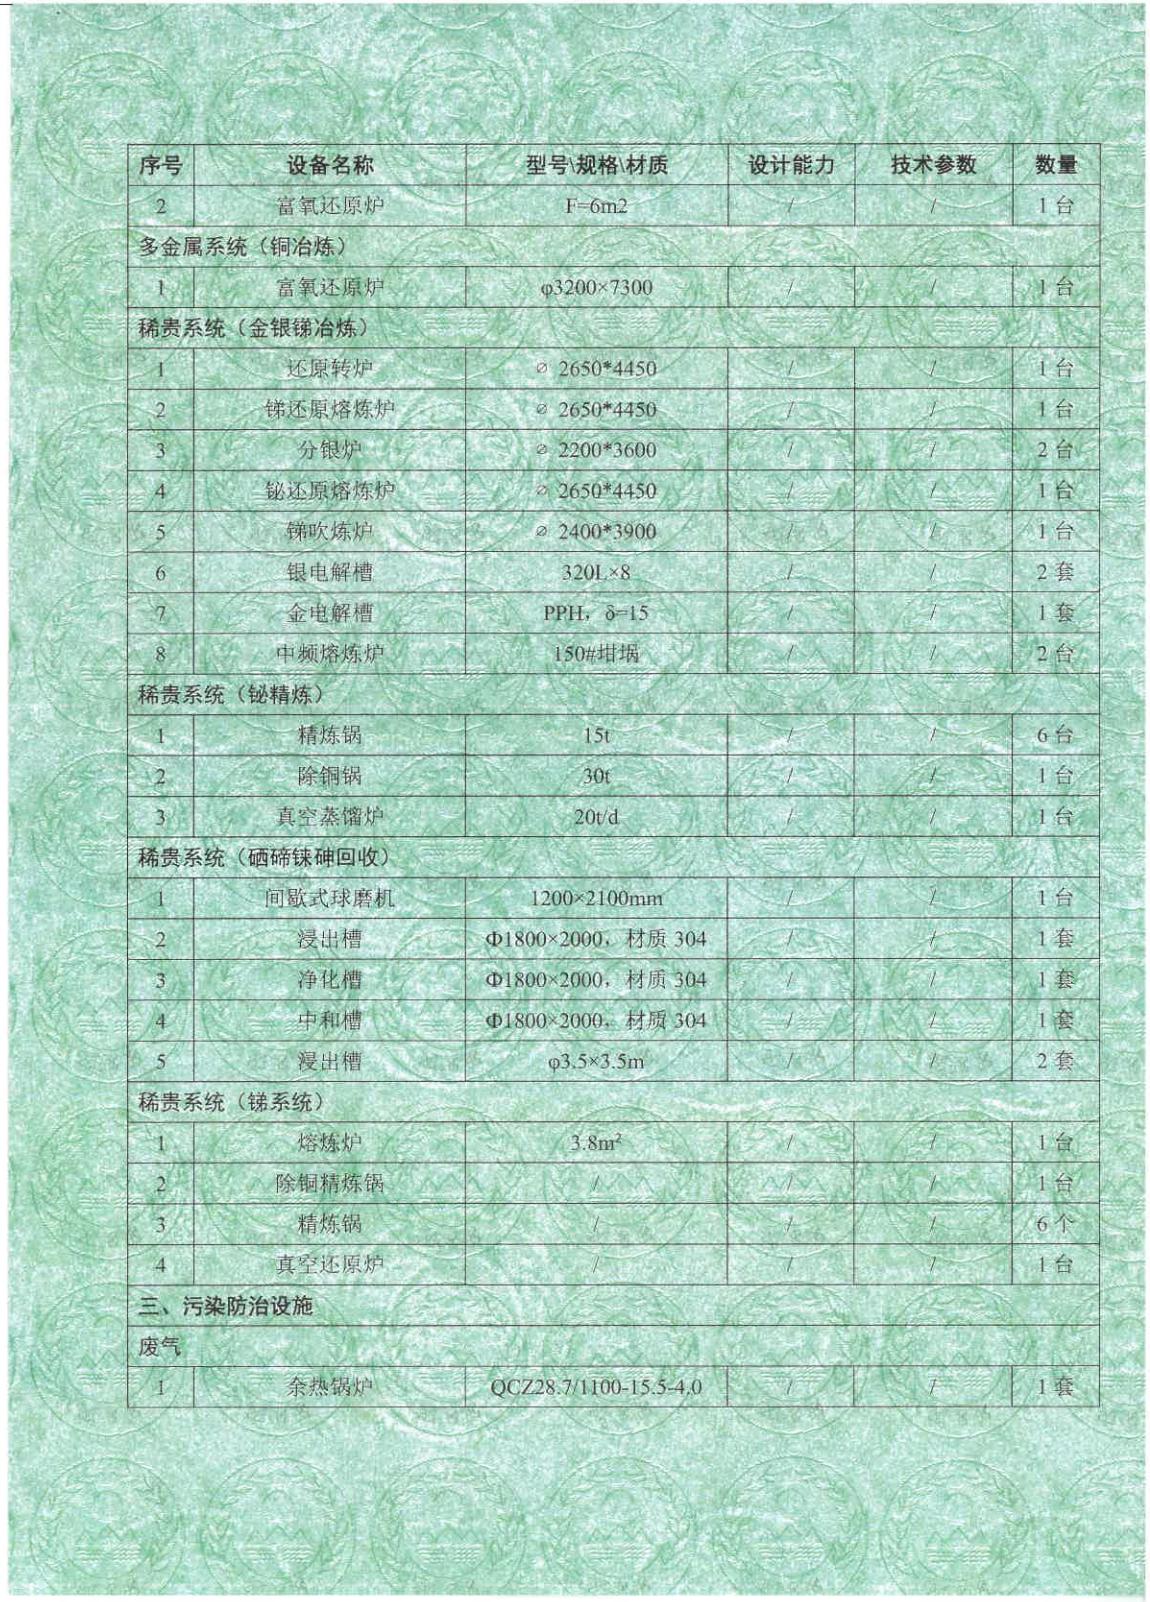 序号 设备名称 型号\规格\材质 设计能力 技术参数 数量
2 富氧还原炉 F=6m2 / / 1 台
多金属系统（铜冶炼）
1 富氧还原炉 φ3200×7300 / / 1 台
稀贵系统（金银锑冶炼）
1 还原转炉 ∅ 2650*4450 / / 1 台
2 锑还原熔炼炉 ∅ 2650*4450 / / 1 台
3 分银炉 ∅ 2200*3600 / / 2 台
4 铋还原熔炼炉 ∅ 2650*4450 / / 1 台
5 锑吹炼炉 ∅ 2400*3900 / / 1 台
6 银电解槽 320L×8 / / 2 套
7 金电解槽 PPH，δ=15 / / 1 套
8 中频熔炼炉 150#坩埚 / / 2 台
稀贵系统（铋精炼）
1 精炼锅 15t / / 6 台
2 除铜锅 30t / / 1 台
3 真空蒸馏炉 20t/d / / 1 台
稀贵系统（硒碲铼砷回收）
1 间歇式球磨机 1200×2100mm / / 1 台
2 浸出槽 Φ1800×2000，材质 304 / / 1 套
3 净化槽 Φ1800×2000，材质 304 / / 1 套
4 中和槽 Φ1800×2000，材质 304 / / 1 套
5 浸出槽 φ3.5×3.5m / / 2 套
稀贵系统（锑系统）
1 熔炼炉 3.8m² / / 1 台
2 除铜精炼锅 / / / 1 台
3 精炼锅 / / / 6 个
4 真空还原炉 / / / 1 台
三、污染防治设施
废气
1 余热锅炉 QCZ28.7/1100-15.5-4.0 / / 1 套